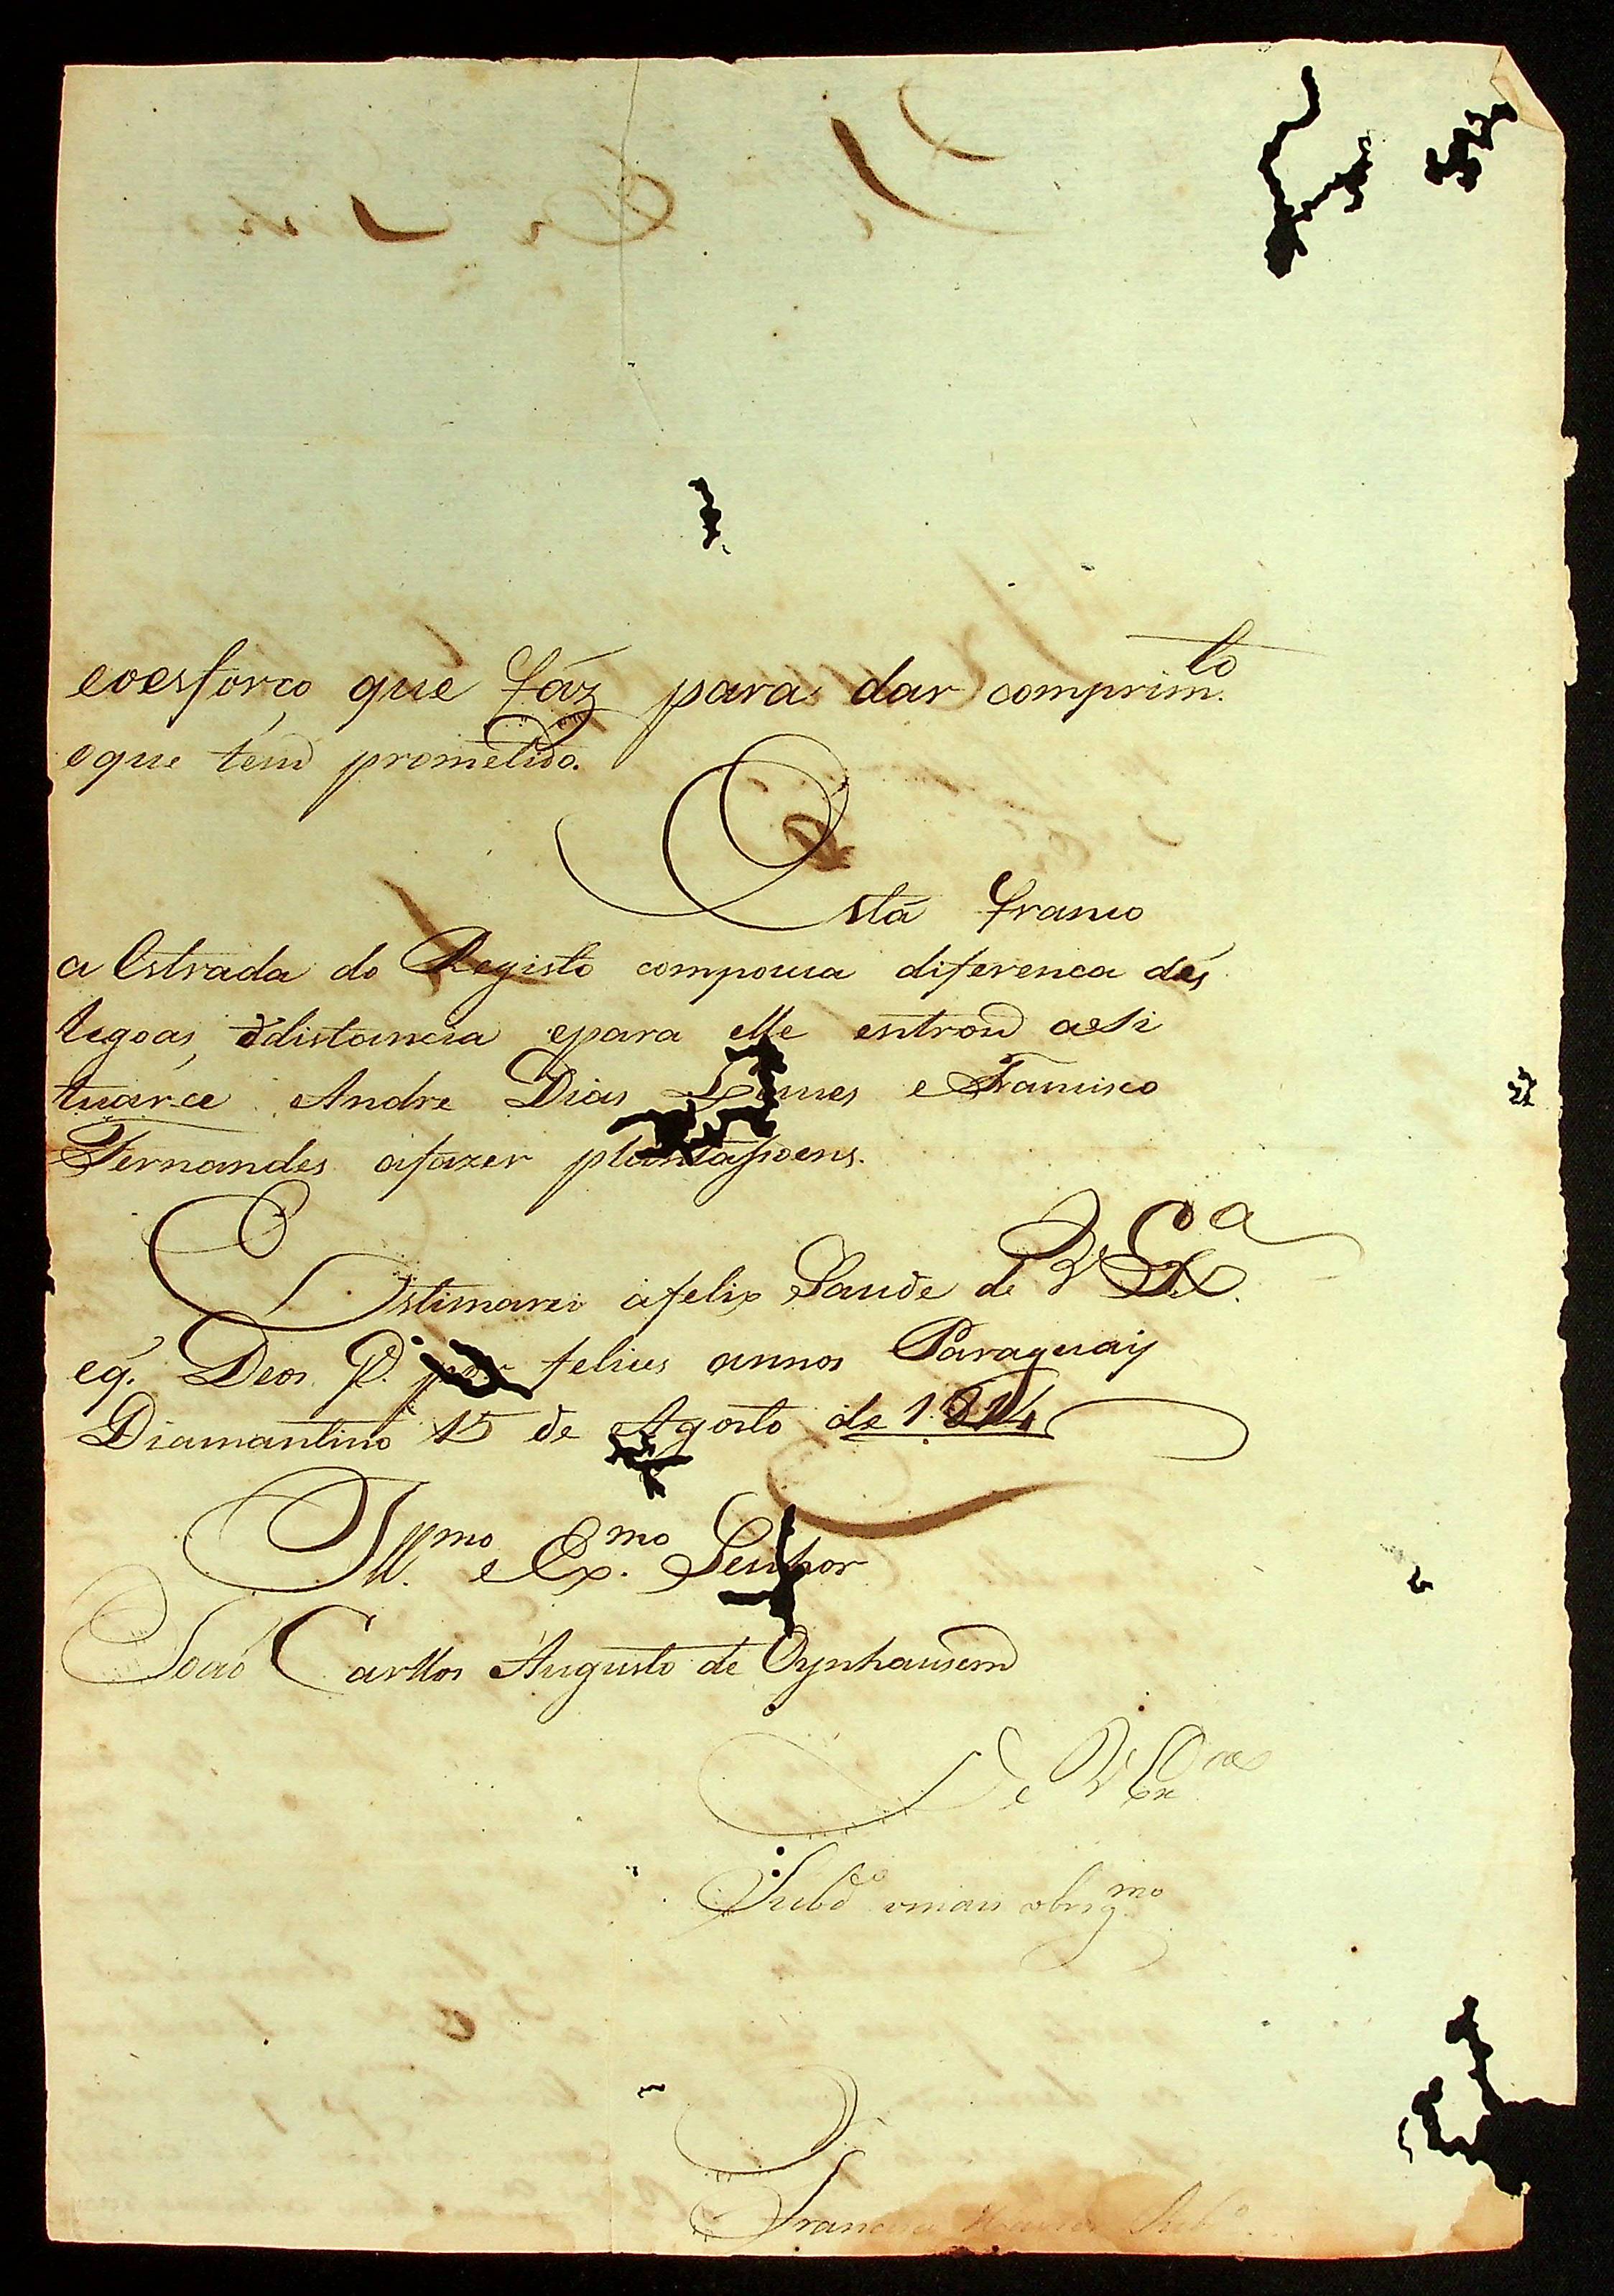 eoesforço que fáz para dar comprim.to
oque tem prometido.
Está franco
a Estrada do Registo compouca diferenca dés
legoas ddistancia epara elle entrou aSi
tuarce Andre Dias e Francisco
Fernandes afazer plantasoens.
Estimarei afelix Saude de VEx.a
eq. Deos G.e por felices annos Paraguay
Diamantino 15 de Agosto de 1814
Ill.mo e Ex.mo Senhor
Joaó Carllos Augusto de Oynhausem
De VEx.ca
Subd.o omais obrig.mo
Francisco